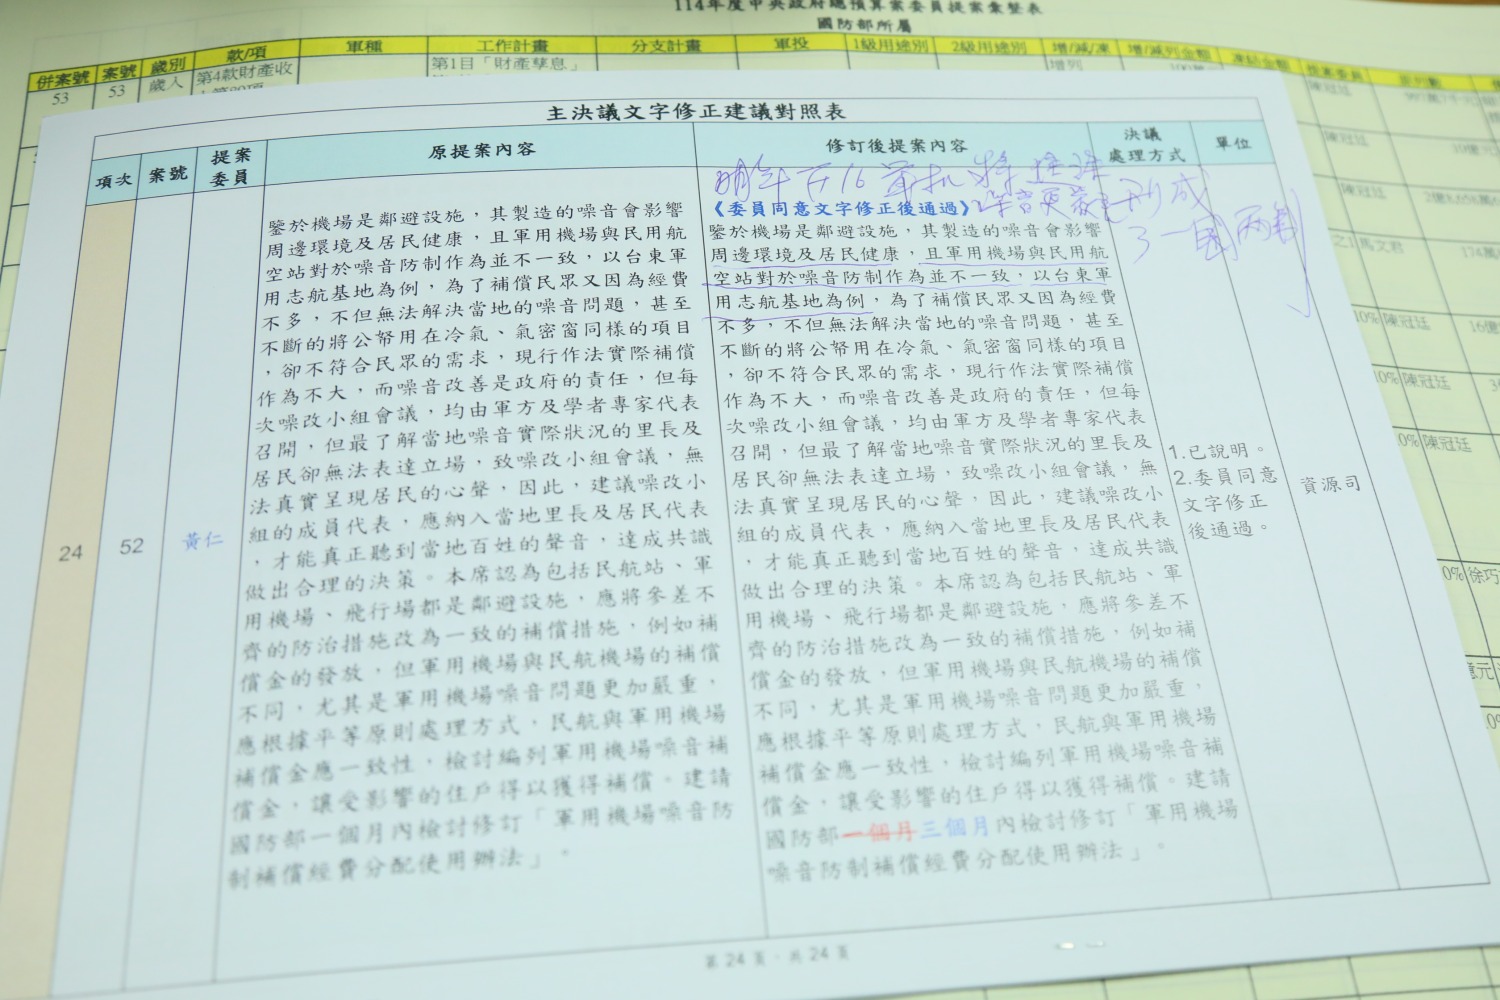 114年度中央政府總預算案委員提案彙整表
國防部所屬
併案號 案號 歲別 款/項 軍種 工作計畫 分支計畫 軍投 1級用途別 2級用途別 增/減/凍 增/減列金額 凍結金額 提案委員
53 53 歲入 第4款財產收 第1目「財產孳息」 增列
主決議文字修正建議對照表
項次 案號 提案委員 原提案內容 修訂後提案內容 決議處理方式 單位
24 52 黃仁
鑒於機場是鄰避設施，其製造的噪音會影響
周邊環境及居民健康，且軍用機場與民用航
空站對於噪音防制作為並不一致，以台東軍
用志航基地為例，為了補償民眾又因為經費
不多，不但無法解決當地的噪音問題，甚至
不斷的將公帑用在冷氣、氣密窗同樣的項目
，卻不符合民眾的需求，現行作法實際補償
作為不大，而噪音改善是政府的責任，但每
次噪改小組會議，均由軍方及學者專家代表
召開，但最了解當地噪音實際狀況的里長及
居民卻無法表達立場，致噪改小組會議，無
法真實呈現居民的心聲，因此，建議噪改小
組的成員代表，應納入當地里長及居民代表
，才能真正聽到當地百姓的聲音，達成共識
做出合理的決策。本席認為包括民航站、軍
用機場、飛行場都是鄰避設施，應將參差不
齊的防治措施改為一致的補償措施，例如補
償金的發放，但軍用機場與民航機場的補償
不同，尤其是軍用機場噪音問題更加嚴重，
應根據平等原則處理方式，民航與軍用機場
補償金應一致性，檢討編列軍用機場噪音補
償金，讓受影響的住戶得以獲得補償。建請
國防部一個月內檢討修訂「軍用機場噪音防
制補償經費分配使用辦法」。
《委員同意文字修正後通過》
鑒於機場是鄰避設施，其製造的噪音會影響
周邊環境及居民健康，且軍用機場與民用航
空站對於噪音防制作為並不一致，以台東軍
用志航基地為例，為了補償民眾又因為經費
不多，不但無法解決當地的噪音問題，甚至
不斷的將公帑用在冷氣、氣密窗同樣的項目
，卻不符合民眾的需求，現行作法實際補償
作為不大，而噪音改善是政府的責任，但每
次噪改小組會議，均由軍方及學者專家代表
召開，但最了解當地噪音實際狀況的里長及
居民卻無法表達立場，致噪改小組會議，無
法真實呈現居民的心聲，因此，建議噪改小
組的成員代表，應納入當地里長及居民代表
，才能真正聽到當地百姓的聲音，達成共識
做出合理的決策。本席認為包括民航站、軍
用機場、飛行場都是鄰避設施，應將參差不
齊的防治措施改為一致的補償措施，例如補
償金的發放，但軍用機場與民航機場的補償
不同，尤其是軍用機場噪音問題更加嚴重，
應根據平等原則處理方式，民航與軍用機場
補償金應一致性，檢討編列軍用機場噪音補
償金，讓受影響的住戶得以獲得補償。建請
國防部一個月三個月內檢討修訂「軍用機場
噪音防制補償經費分配使用辦法」。
形成
了一國兩制
1.已說明。
2.委員同意
文字修正
後通過。
資源司
第 24 頁，共 24 頁
陳冠廷
陳冠廷
陳冠廷
馬文君
10% 陳冠廷
10% 陳冠廷
0% 陳冠廷
0% 徐巧